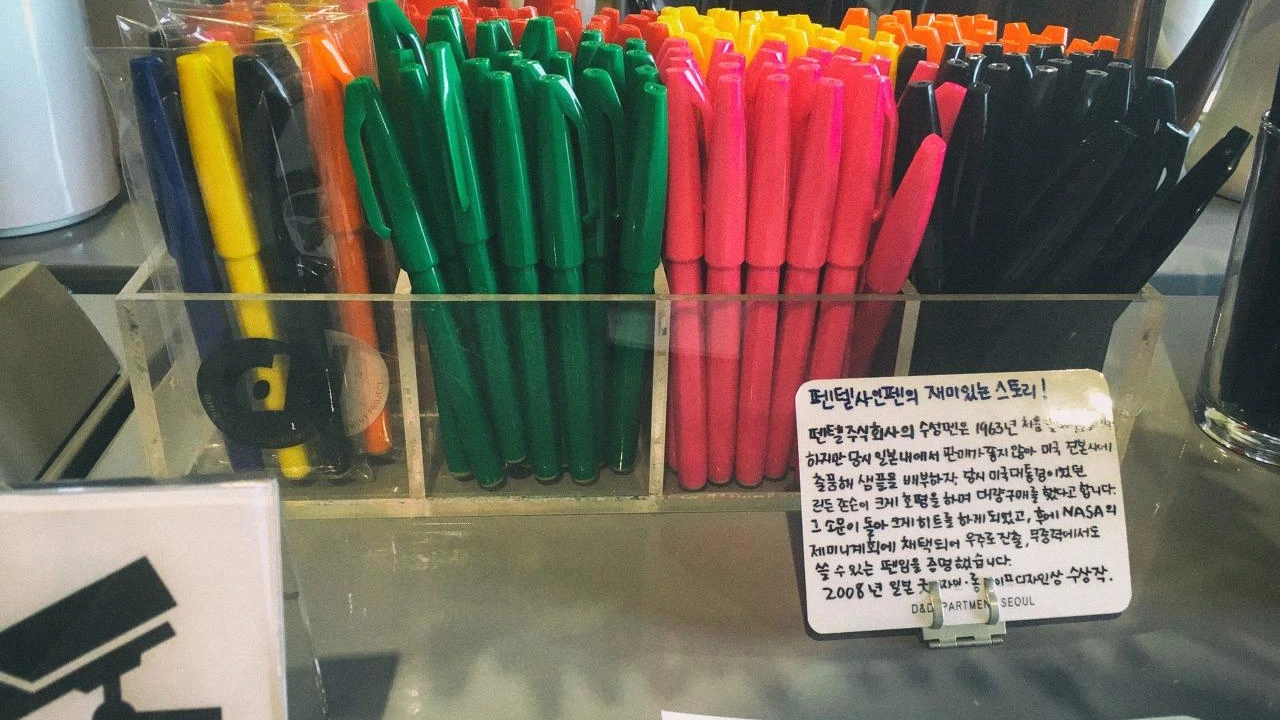 펜텔사인펜의 재미있는 스토리!
펜텔주식회사의 수성펜은 1963년 처음
하지만 당시 일본내에서 판매가 좋지 않아 미국 견본시에
출품해 샘플을 배부하자 당시 미국대통령이었던
린든 존슨이 크게 호평을 하며 대량구매를 했다고 합니다.
그 소문이 돌아 크게 히트를 하게 되었고, 후에 NASA의
제미니계획에 채택되어 우주로 진출, 무중력에서도
쓸 수 있는 펜임을 증명했습니다.
2008년 일본 디자인상 수상작.
D&DEPARTMENT SEOUL
PROJECT